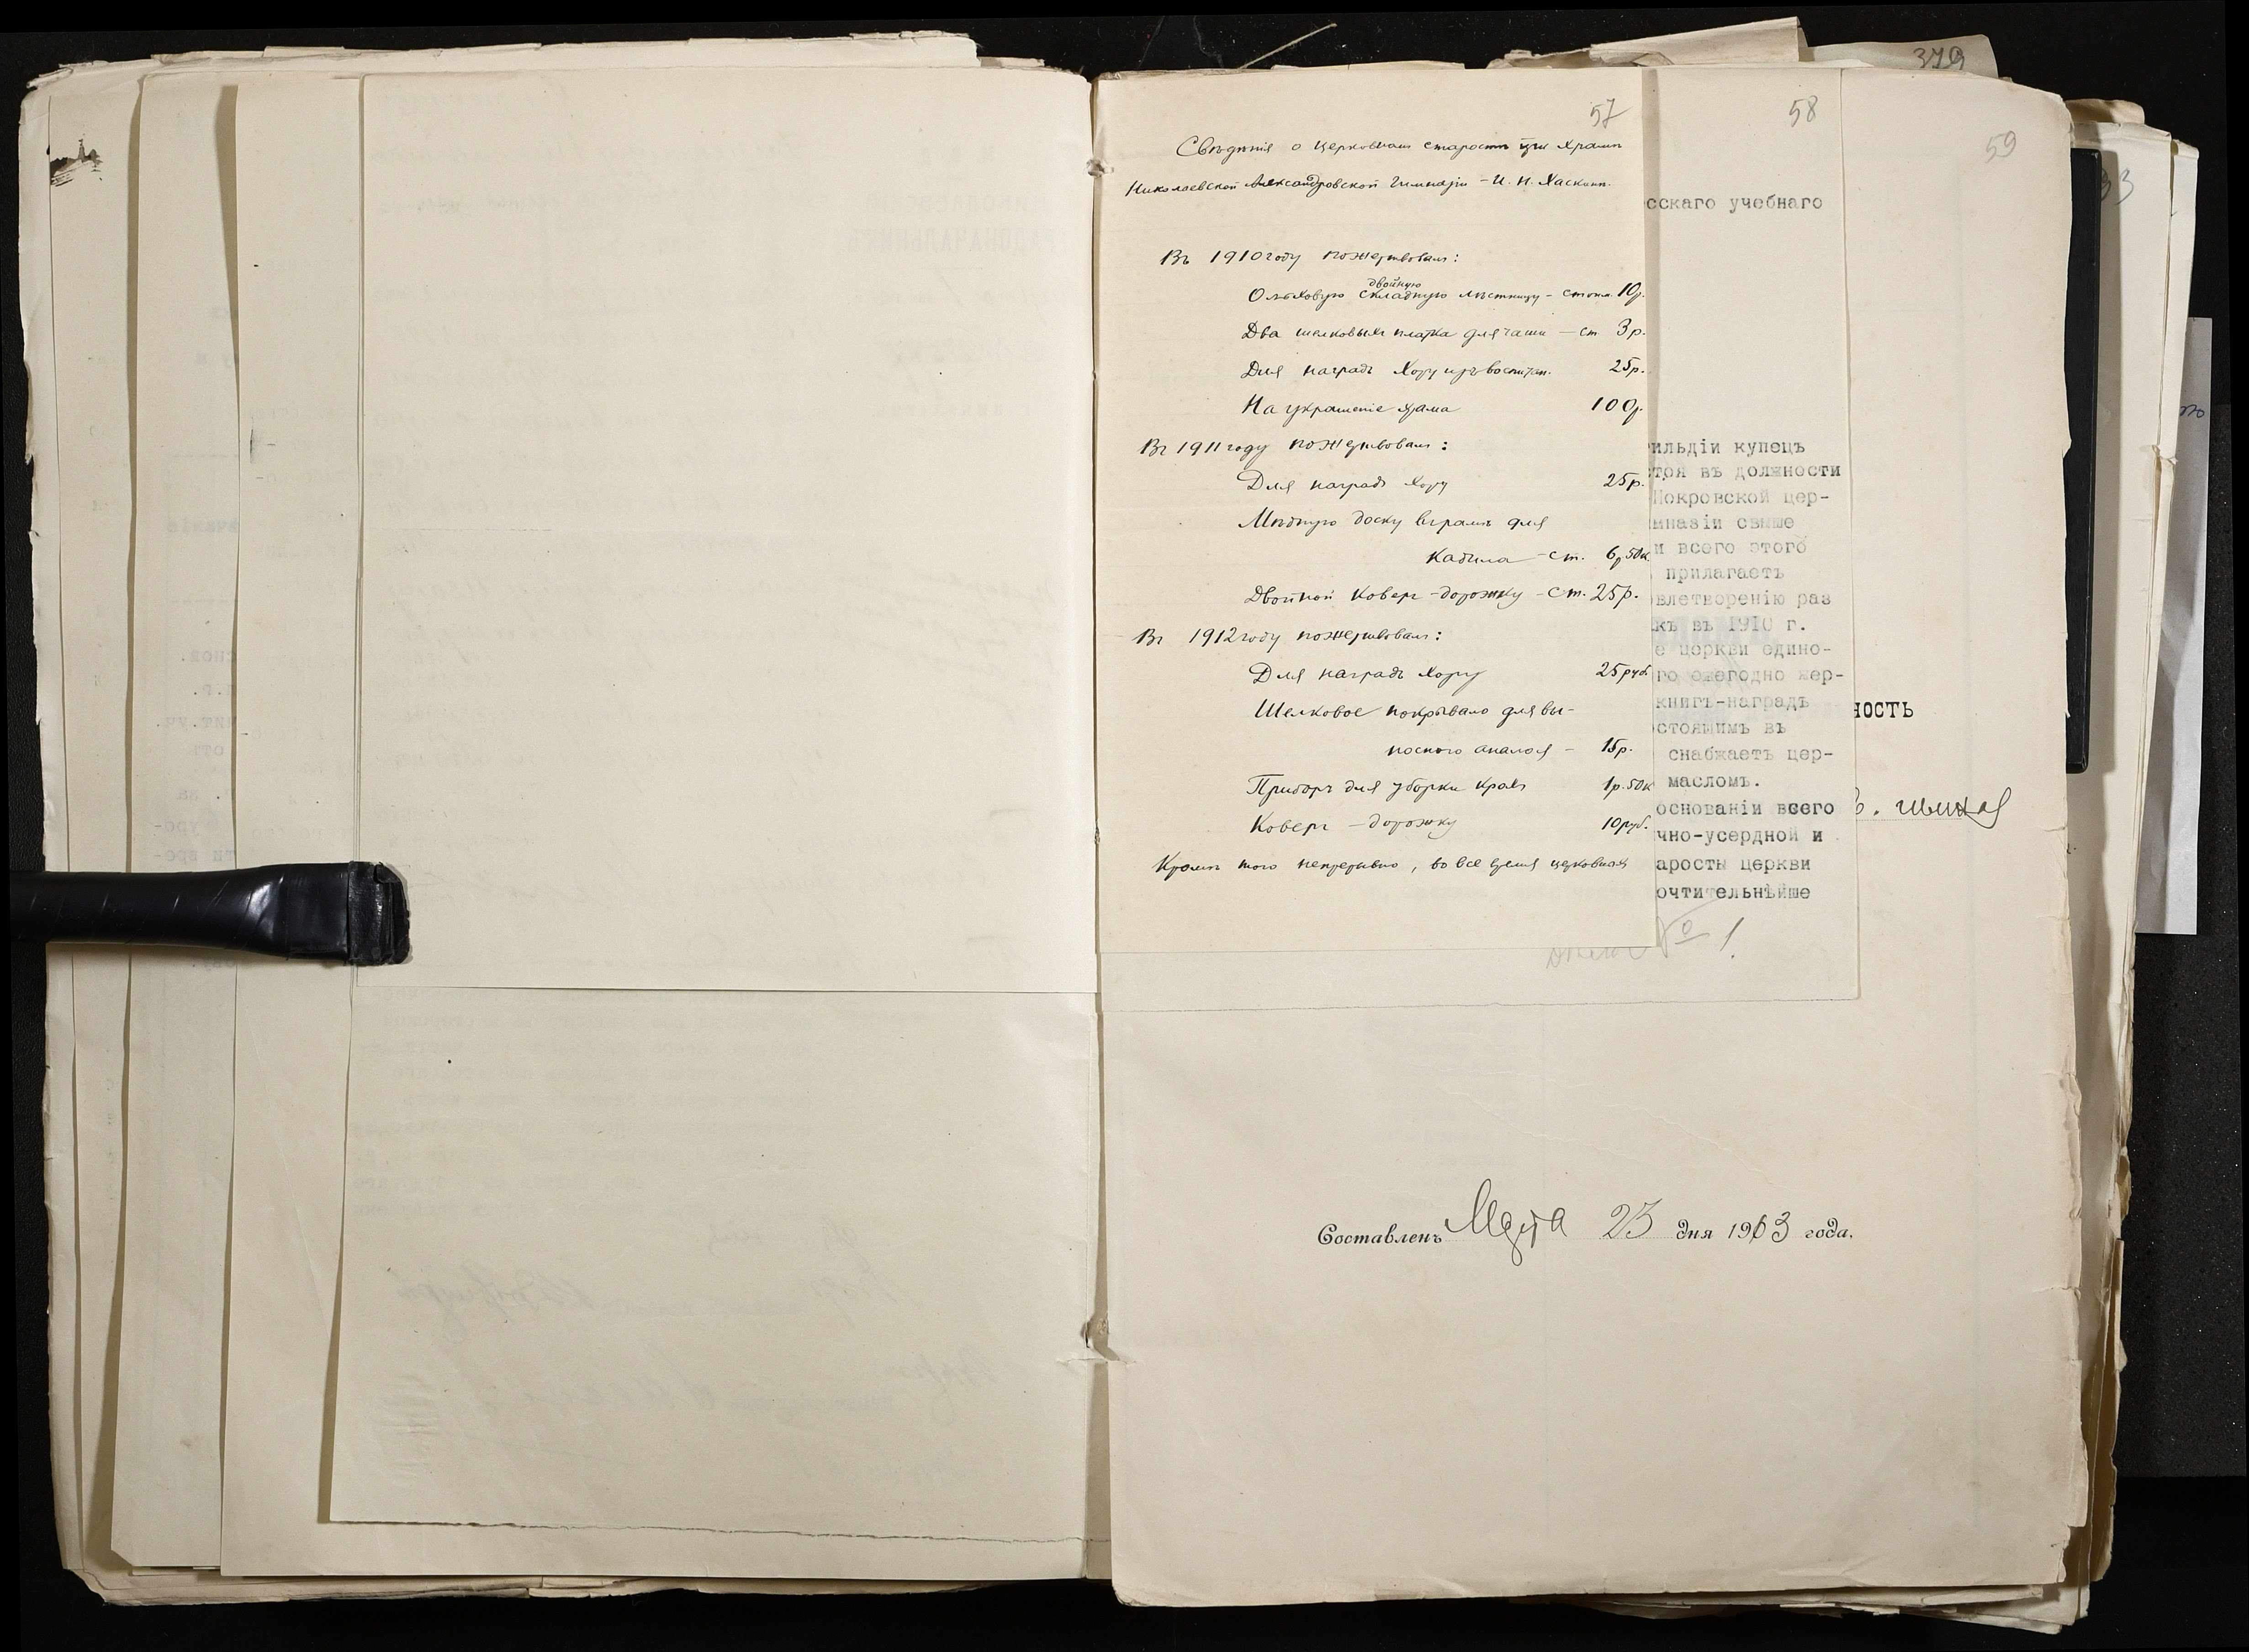 379
57
Свѣдѣнія о церковномъ старостѣ при храмѣ
Николаевской Александровской Гимназіи - И. Н. Хаскинѣ.
Въ 1910 году пожертвовалъ:
двойную
Ольховую складную лѣстницу - стоим. 10р.
Два шелковыхъ платка для чаши - ст. 3р.
Для наградъ хору изъ воспитан. 25р.
На украшеніе храма 100р.
Въ 1911 году пожертвовалъ:
Для наградъ хору 25р.
Мѣдную доску въ рамѣ для
кадила - ст. 6р 50к
Двойной коверъ-дорожку - ст. 25р.
Въ 1912 году пожертвовалъ:
Для наградъ хору 25 руб.
Шелковое покрывало для вы-
носного аналоя - 15р.
Приборъ для уборки крохъ 1р. 50к
Коверъ - дорожку 10 руб.
Кромѣ того непрерывно, во все время церковная
58
сскаго учебнаго
ильдіи купецъ
тоя въ должности
Покровской цер-
мназіи свыше
и всего этого
прилагаетъ
влетворенію раз
къ въ 1910 г.
е церкви едино-
го ежегодно жер-
книгъ-наградъ
стоящимъ въ
снабжаетъ цер-
масломъ.
основаніи всего
чно-усердной и
аросты церкви
очтительнѣйше
№ 1
59
ность
Составленъ Марта 23 дня 1903 года.